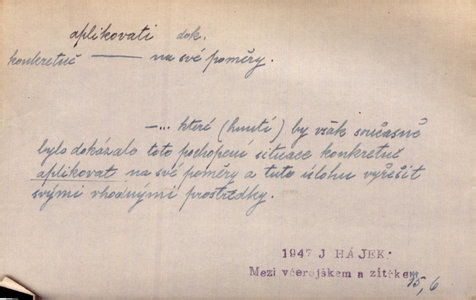 aplikovati dok.
konkretně —— na své poměry.
—... které (hnutí) by však současně
bylo dokázalo toto pochopení situace konkretně
aplikovat na své poměry a tuto úlohu vyřešit
svými vhodnými prostředky.
1947 J HÁJEK:
Mezi včerejškem a zítřkem
15,6